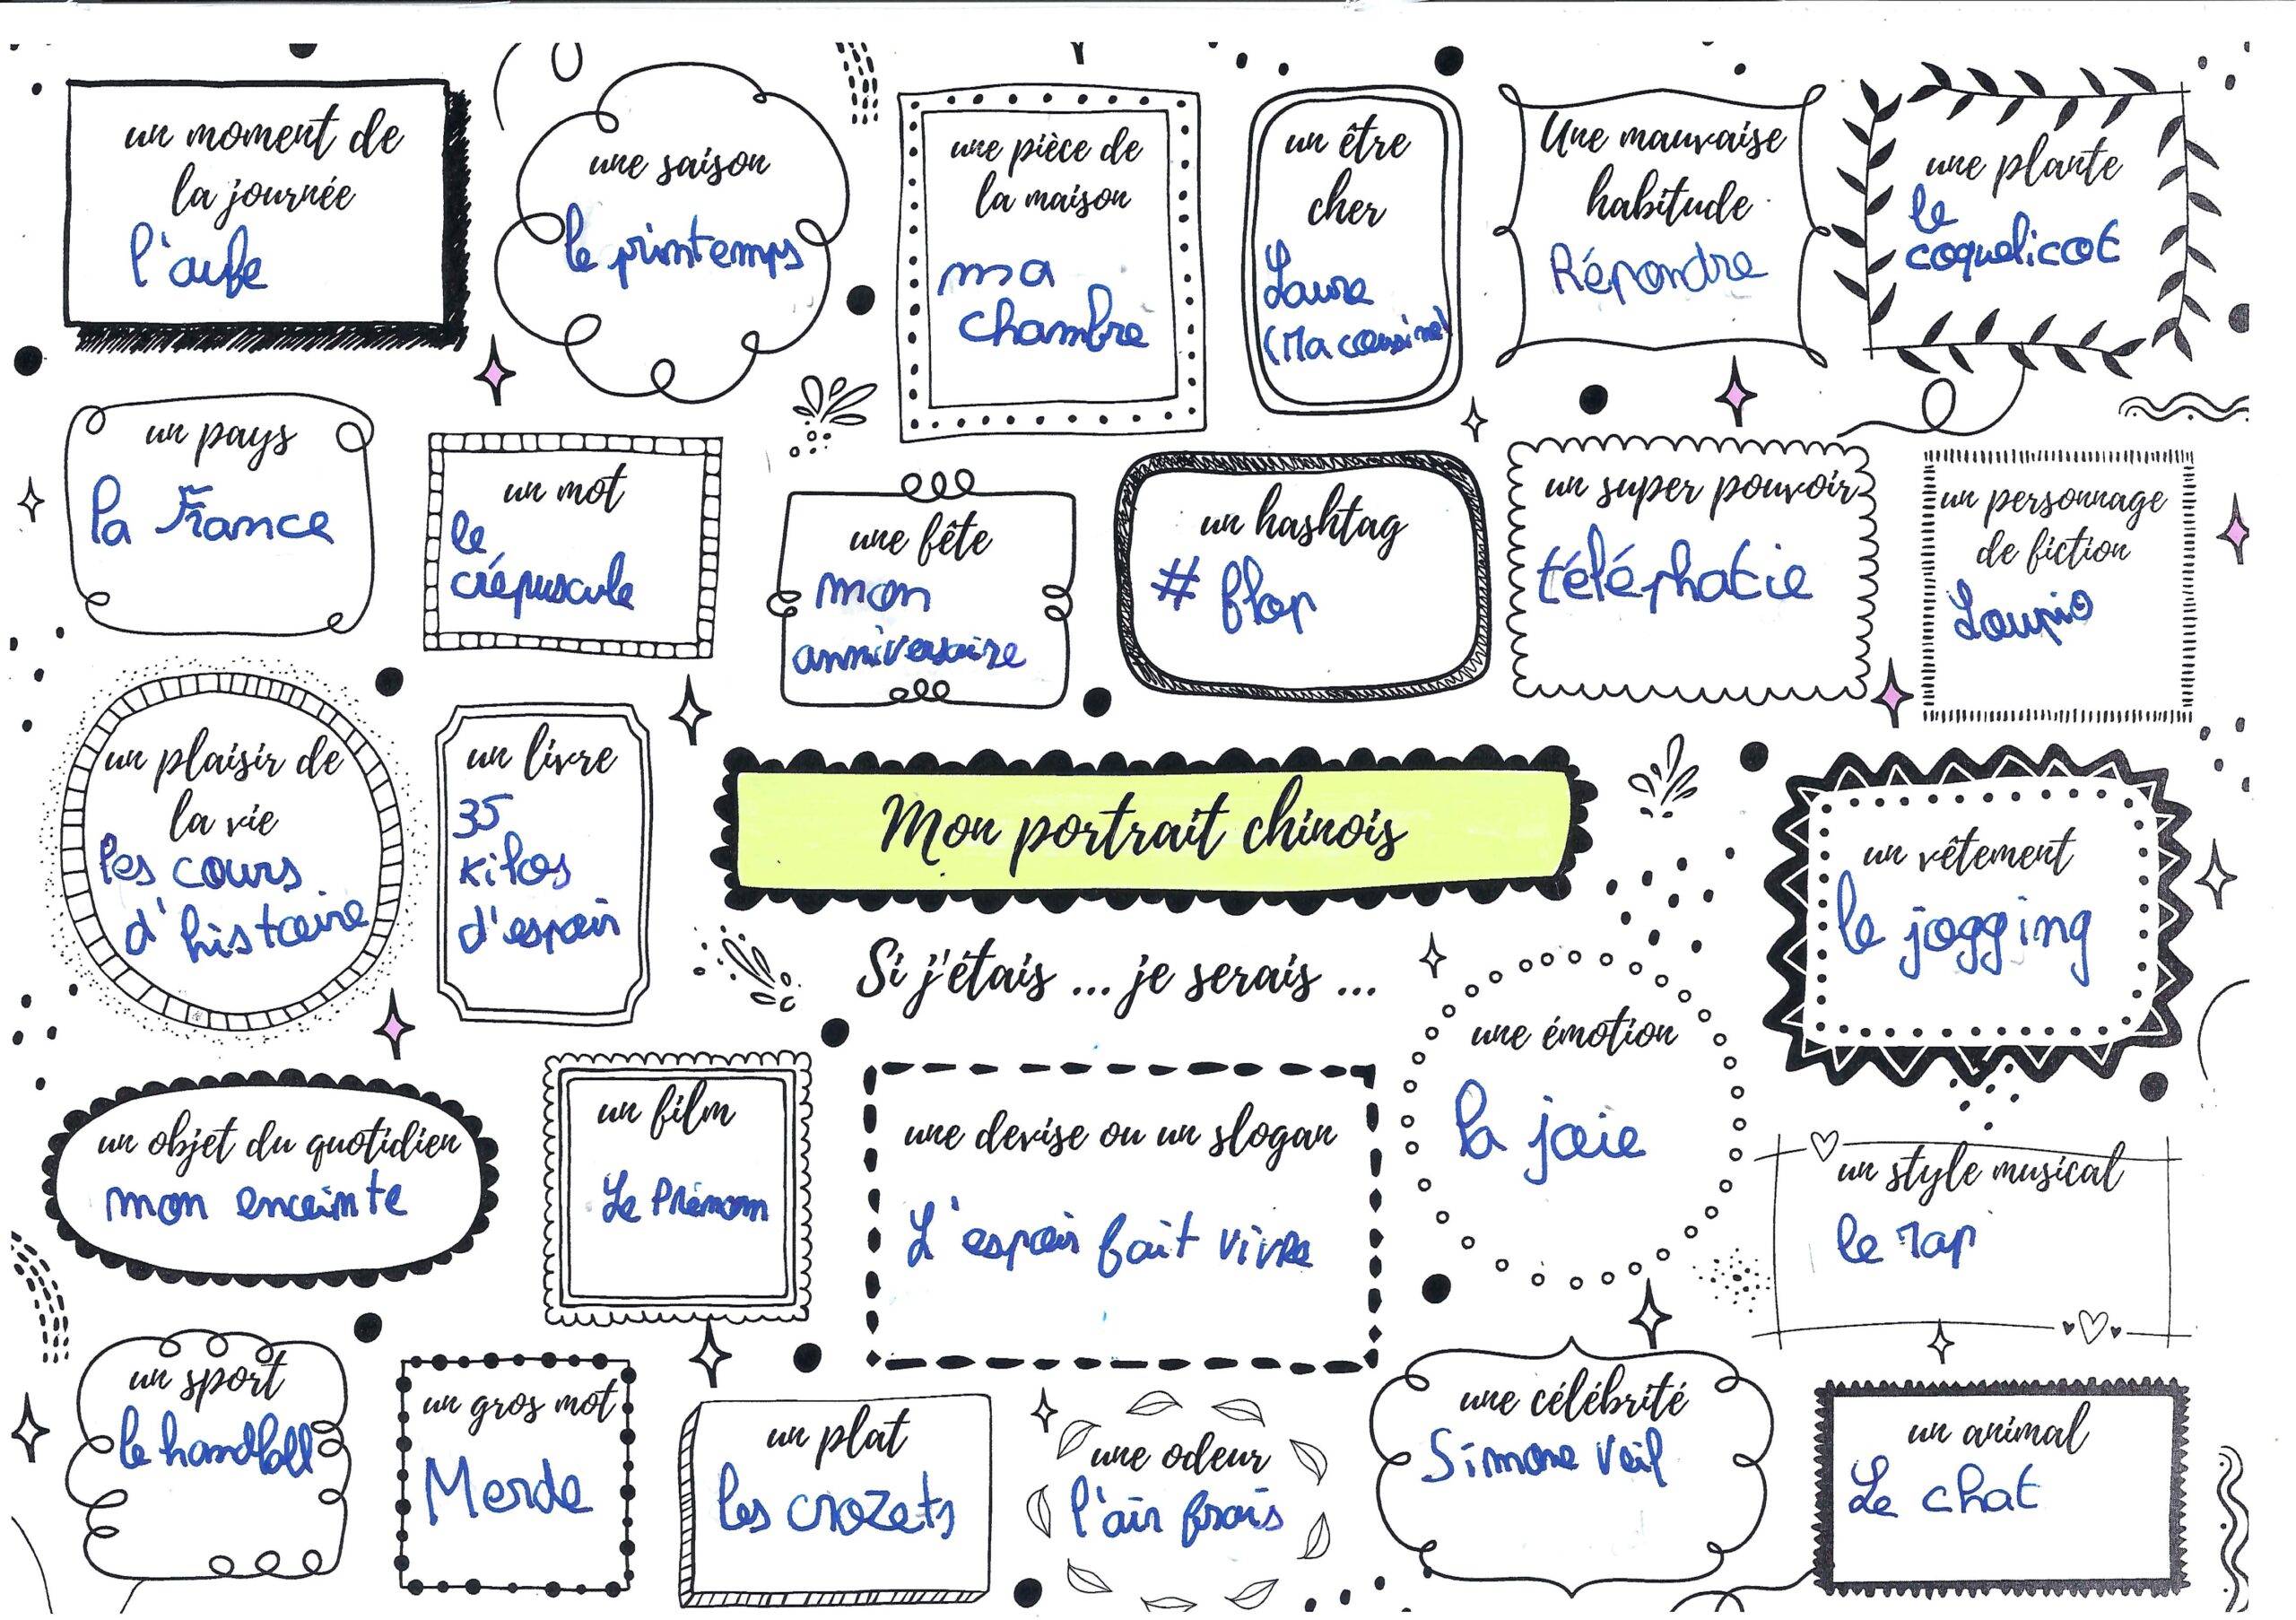 un moment de
la journée
l'aube
une saison
le printemps
une pièce de
la maison
ma
chambre
un être
cher
Laura
(Ma cousine)
Une mauvaise
habitude
Répondre
une plante
le
coquelicot
un pays
la France
un mot
le
crépuscule
une fête
mon
anniversaire
un hashtag
# flop
un super pouvoir
téléphatie
un personnage
de fiction
Loupio
un plaisir de
la vie
les cours
d'histoire
un livre
35
kilos
d'espoir
Mon portrait chinois
Si j'étais ... je serais ...
un vêtement
le jogging
une émotion
la joie
un objet du quotidien
mon enceinte
un film
Le Prénom
une devise ou un slogan
L'espoir fait vivre
un style musical
le rap
un sport
le handball
un gros mot
Merde
un plat
les crozets
une odeur
l'air frais
une célébrité
Simone Veil
un animal
Le chat